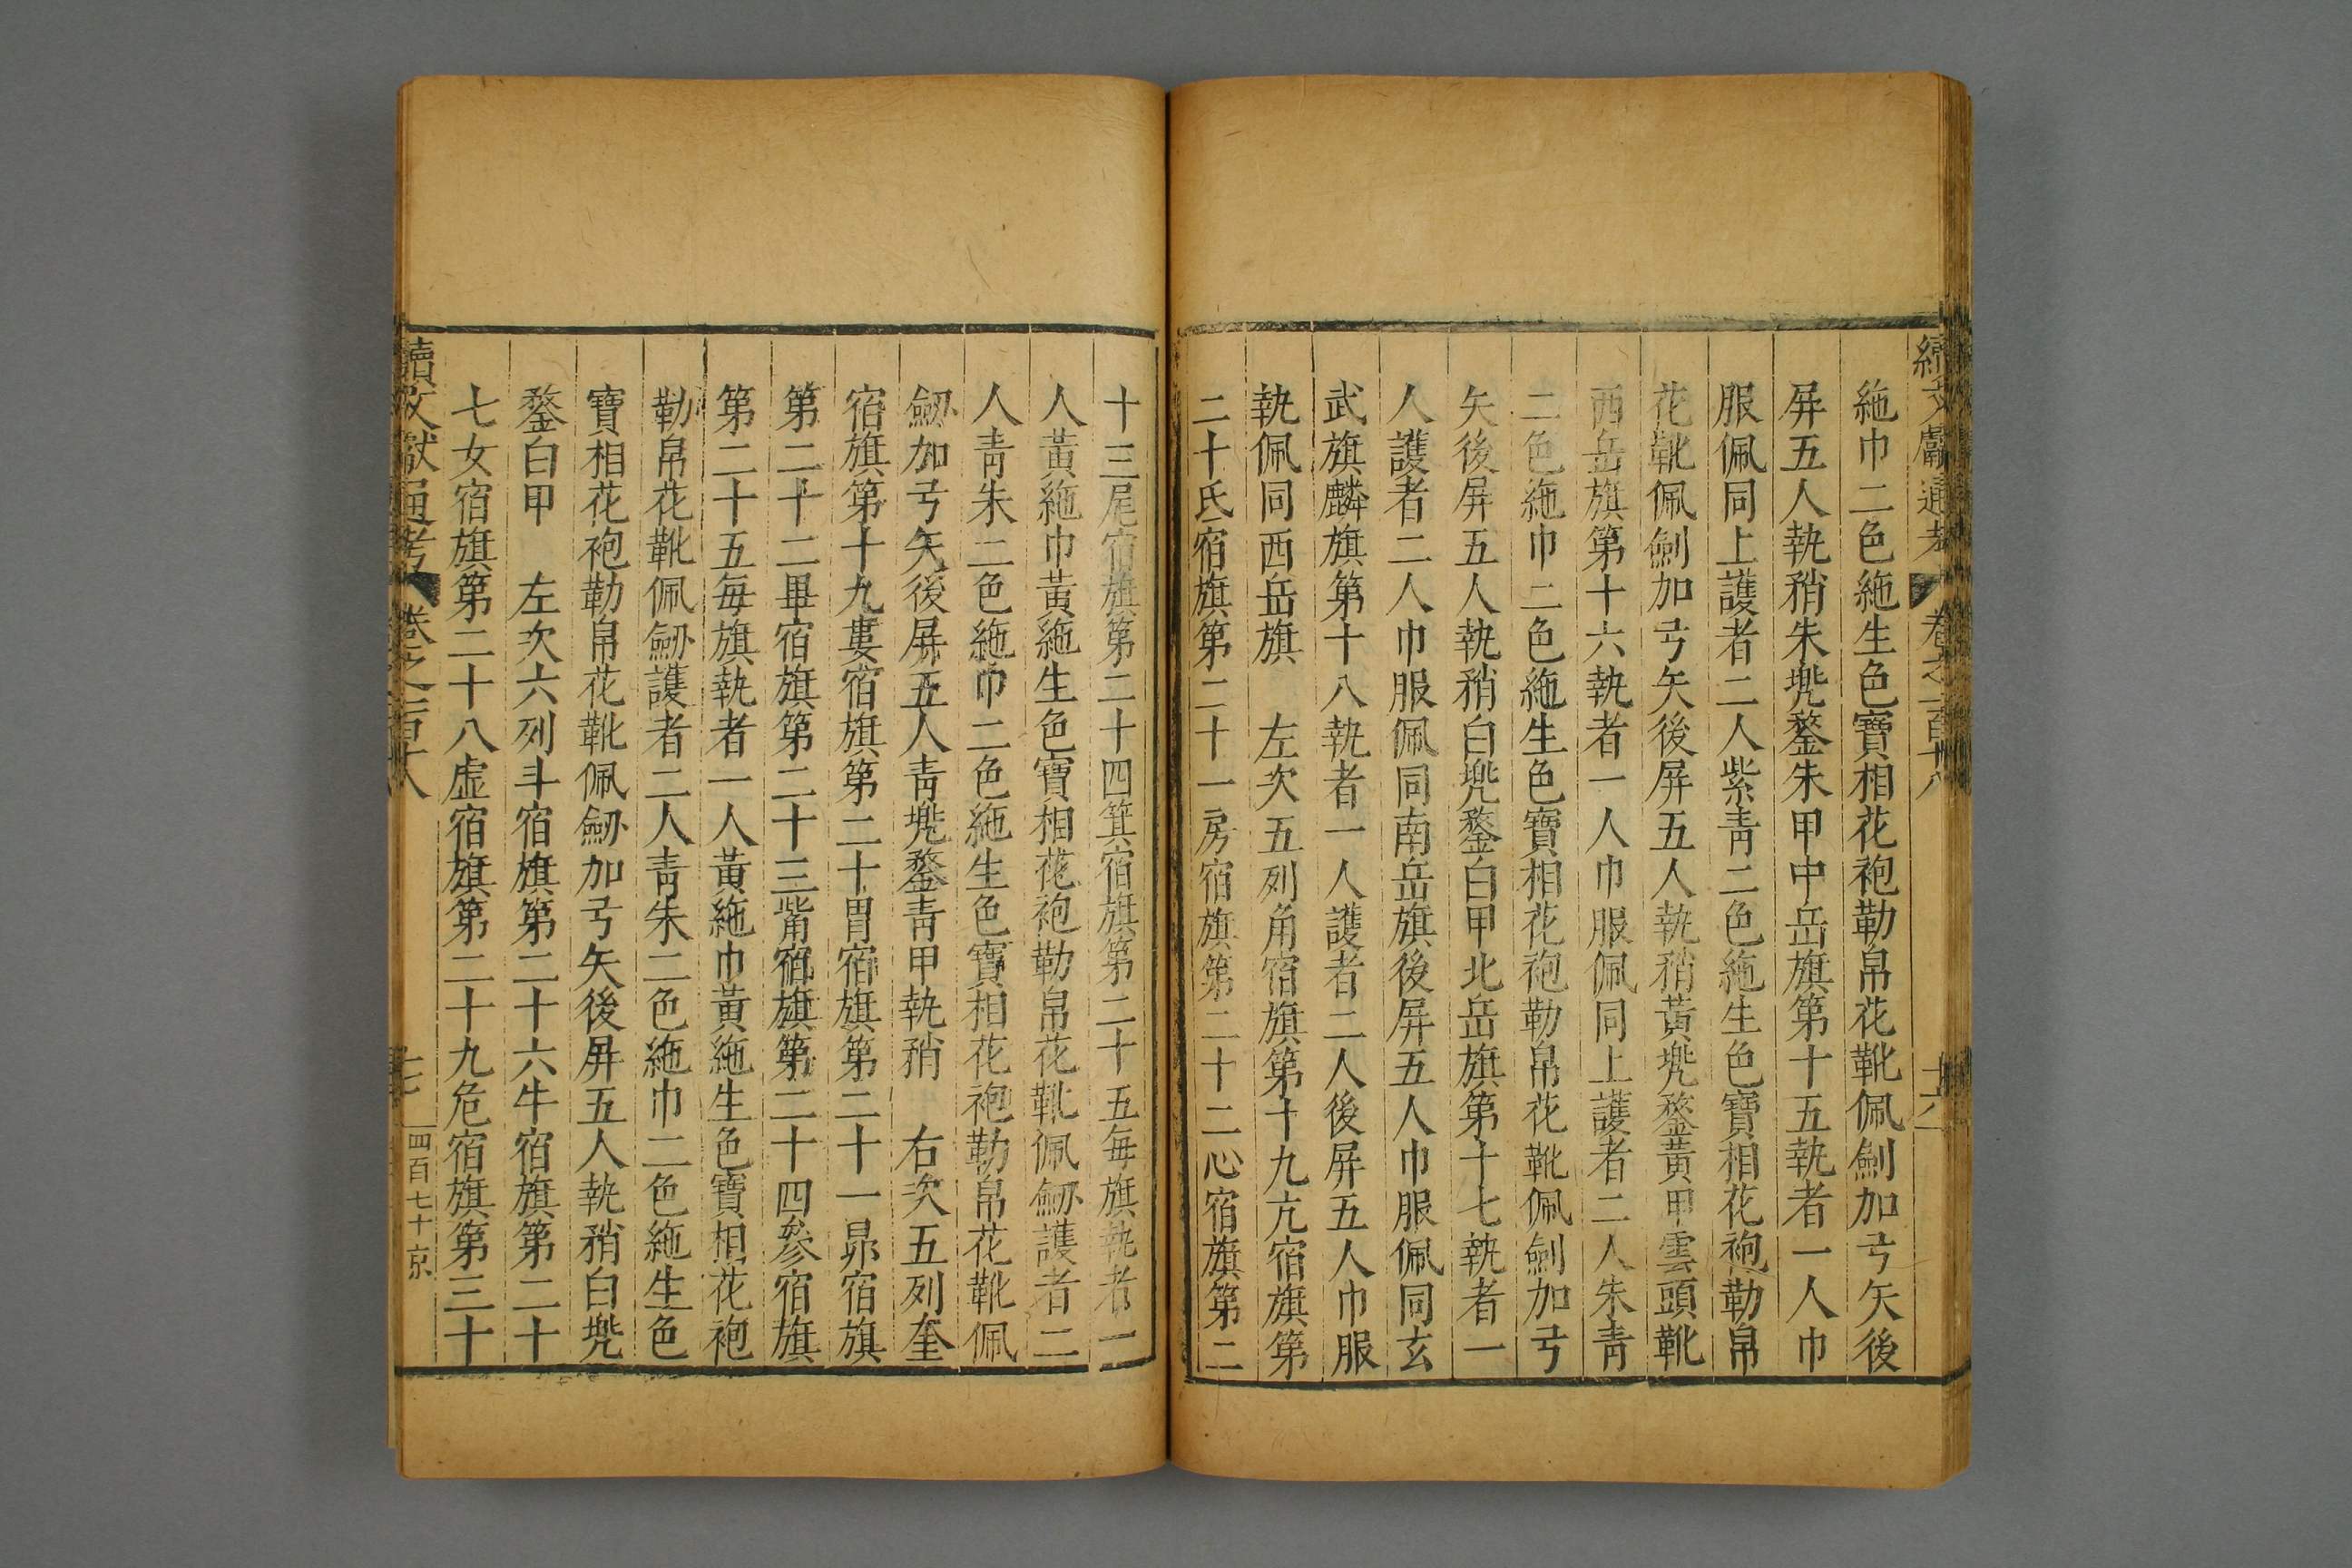 續文獻通考 卷之一百十八 十六
絁巾二色絁生色寶相花袍勒帛花靴佩劍加弓矢後
屏五人執矟朱兠鍪朱甲中岳旗第十五執者一人巾
服佩同上護者二人紫青二色絁生色寶相花袍勒帛
花靴佩劍加弓矢後屏五人執矟黃兠鍪黃甲雲頭靴
西岳旗第十六執者一人巾服佩同上護者二人朱青
二色絁巾二色絁生色寶相花袍勒帛花靴佩劍加弓
矢後屏五人執矟白兠鍪白甲北岳旗第十七執者一
人護者二人巾服佩同南岳旗後屏五人巾服佩同玄
武旗麟旗第十八執者一人護者二人後屏五人巾服
執佩同西岳旗 左次五列角宿旗第十九亢宿旗第
二十氐宿旗第二十一房宿旗第二十二心宿旗第二
十三尾宿旗第二十四箕宿旗第二十五每旗執者一
人黃絁巾黃絁生色寶相花袍勒帛花靴佩劒護者二
人青朱二色絁巾二色絁生色寶相花袍勒帛花靴佩
劒加弓矢後屏五人青兠鍪青甲執矟 右次五列奎
宿旗第十九婁宿旗第二十胃宿旗第二十一昴宿旗
第二十二畢宿旗第二十三觜宿旗第二十四參宿旗
第二十五每旗執者一人黃絁巾黃絁生色寶相花袍
勒帛花靴佩劒護者二人青朱二色絁巾二色絁生色
寶相花袍勒帛花靴佩劒加弓矢後屏五人執矟白兠
鍪白甲 左次六列斗宿旗第二十六牛宿旗第二十
七女宿旗第二十八虛宿旗第二十九危宿旗第三十
續文獻通考 卷之一百十八 十七 四百七十京